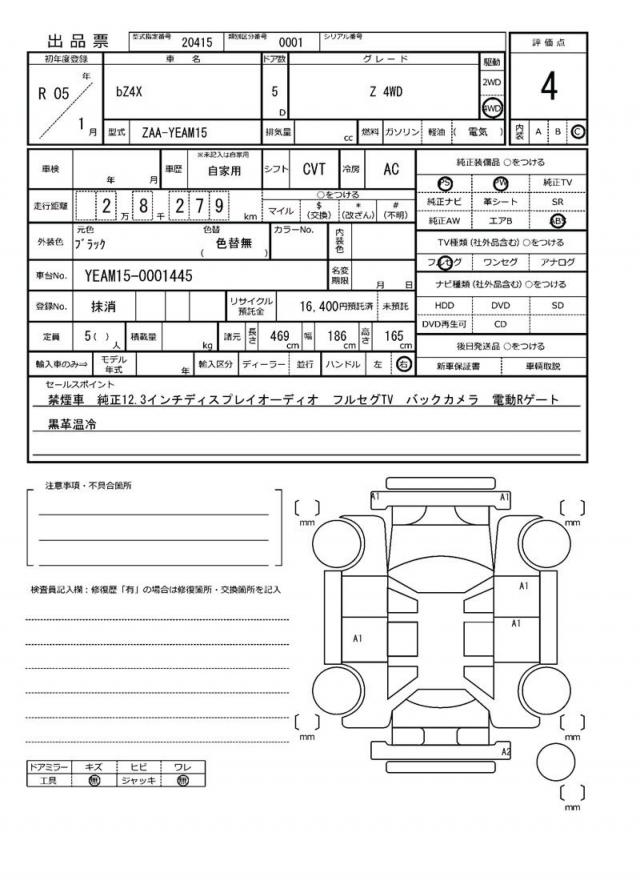 出品票 型式指定番号 20415 類別区分番号 0001 シリアル番号
初年度登録 車名 ドア数 グレード 駆動 評価点
R 05 年 1 月 bZ4X 5 D Z 4WD 2WD 4WD 4
型式 ZAA-YEAM15 排気量 cc 燃料 ガソリン 軽油 ( 電気 ) 内装 A B C
車検 年 月 車歴 ※未記入は自家用 自家用 シフト CVT 冷房 AC
純正装備品 ○をつける
PS PW 純正TV
走行距離 2 万 8 千 2 7 9 km ○をつける
マイル $(交換) *(改ざん) #(不明)
純正ナビ 革シート SR
純正AW エアB ABS
外装色 元色 ブラック 色替 色替無 ( ) カラーNo. 内装色
TV種類 (社外品含む) ○をつける
フルセグ ワンセグ アナログ
車台No. YEAM15-0001445 名変期限 月 日
ナビ種類 (社外品含む) ○をつける
登録No. 抹消 リサイクル預託金 16,400円預託済 未預託
HDD DVD SD
DVD再生可 CD
定員 5 ( ) 人 積載量 kg 諸元 長さ 469 cm 幅 186 cm 高さ 165 cm
後日発送品 ○をつける
輸入車のみ⇒ モデル年式 年 輸入区分 ディーラー 並行 ハンドル 左 右
新車保証書 車輌取説
セールスポイント
禁煙車 純正12.3インチディスプレイオーディオ フルセグTV バックカメラ 電動Rゲート
黒革温冷
注意事項・不具合箇所
A1 A1
mm mm
検査員記入欄:修復歴「有」の場合は修復箇所・交換箇所を記入
A1
A1
A1
mm mm
A2
ドアミラー キズ ヒビ ワレ
工具 無 ジャッキ 無
mm